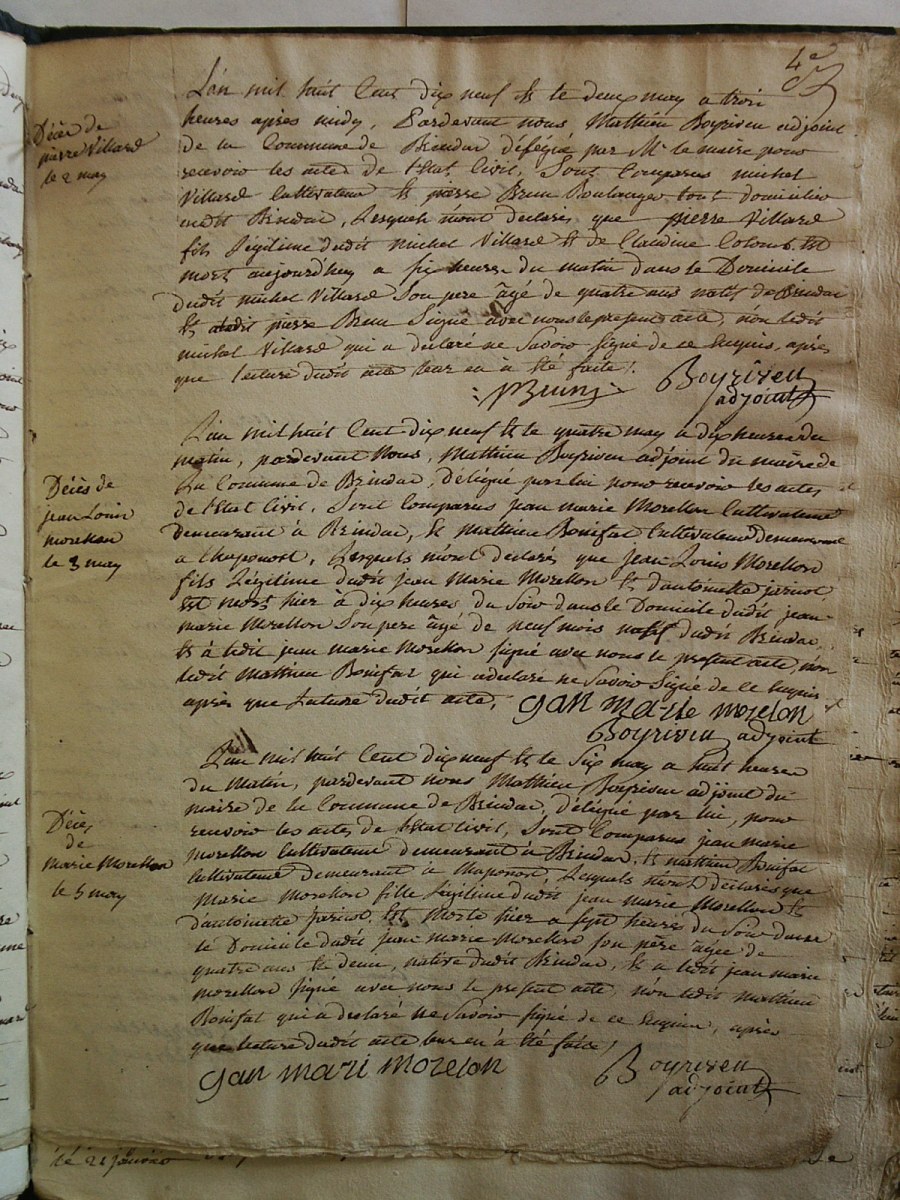 4e
L'an mil huit Cent dix neuf & le deux may a trois
heures après midy, Pardevant nous Mathieu Boyriven adjoint
de la Commune de Brindas délégué par Mr le maire pour
recevoir les actes de l'Etat Civil, Sont Comparus michel
Villard Cultivateur & pierre Brun Boulanger tout domicilié
audit Brindas, Lesquels m'ont declarés que pierre Villard
fils Légitime dudit michel Villard & de Claudine Colomb, Est
mort aujourd'huy a six heures du matin dans le Domicile
dudit michel Villard Son pere âgé de quatre ans natif de Brindas
Et pierre Brun Signé avec nous le present acte, non ledit
michel Villard qui a declaré ne Savoir signé de ce Enquis, après
que lecture dudit acte leur en à été faite.
Décès de
pierre Villard
le 2 may
pBrun
Boyriven
adjoint
L'an mil huit Cent dix neuf & le quatre may a dix heures du
matin, pardevant Nous, Mathieu Boyriven adjoint du maire de
la Commune de Brindas, délégué par lui pour recevoir les actes
de l'Etat Civil, Sont Comparus jean marie Morellon Cultivateur
demeurant à Brindas, & mathieu Bonifat Cultivateur demeurant
a Chaponost, Lesquels m'ont declarés que jean Louis Morellon
fils Légitime dudit jean Marie Morellon & d'antoinette jaricot
est mort hier à dix heures du Soir dans le Domicile dudit jean
marie Morellon Son pere âgé de neuf mois natif dudit Brindas,
& à ledit jean marie Morellon signé avec nous le present acte, non
ledit Mathieu Bonifat qui a declaré ne Savoir Signé de ce Enquis
après que Lecture dudit acte,
Décès de
jean Louis
morellon
le 3 may
gan marie morelon
Boyriven adjoint
L'an mil huit Cent dix neuf & le Six may a huit heures
du Matin, pardevant nous Mathieu Boyriven adjoint du
maire de la Commune de Brindas, délégué par lui, pour
recevoir les actes de l'Etat Civil, Sont Comparus jean marie
morellon Cultivateur demeurant à Brindas, & mathieu Bonifat
Cultivateur demeurant à Chaponost, Lesquels m'ont declarés que
Marie Morellon fille Légitime dudit jean Marie Morellon &
d'antoinette Jaricot, Est Morte hier a sept heures du Soir dans
le Domicile dudit jean marie Morellon son père âgée de
quatre ans & demi, native dudit Brindas, & a ledit jean marie
Morellon signé avec nous le present acte non ledit Mathieu
Bonifat qui a declaré ne Savoir signé de ce Enquis, après
que lecture dudit acte leur en à été faite,
Décès
de
marie Morellon
le 5 may
gan mari morelon
Boyriven
adjoint